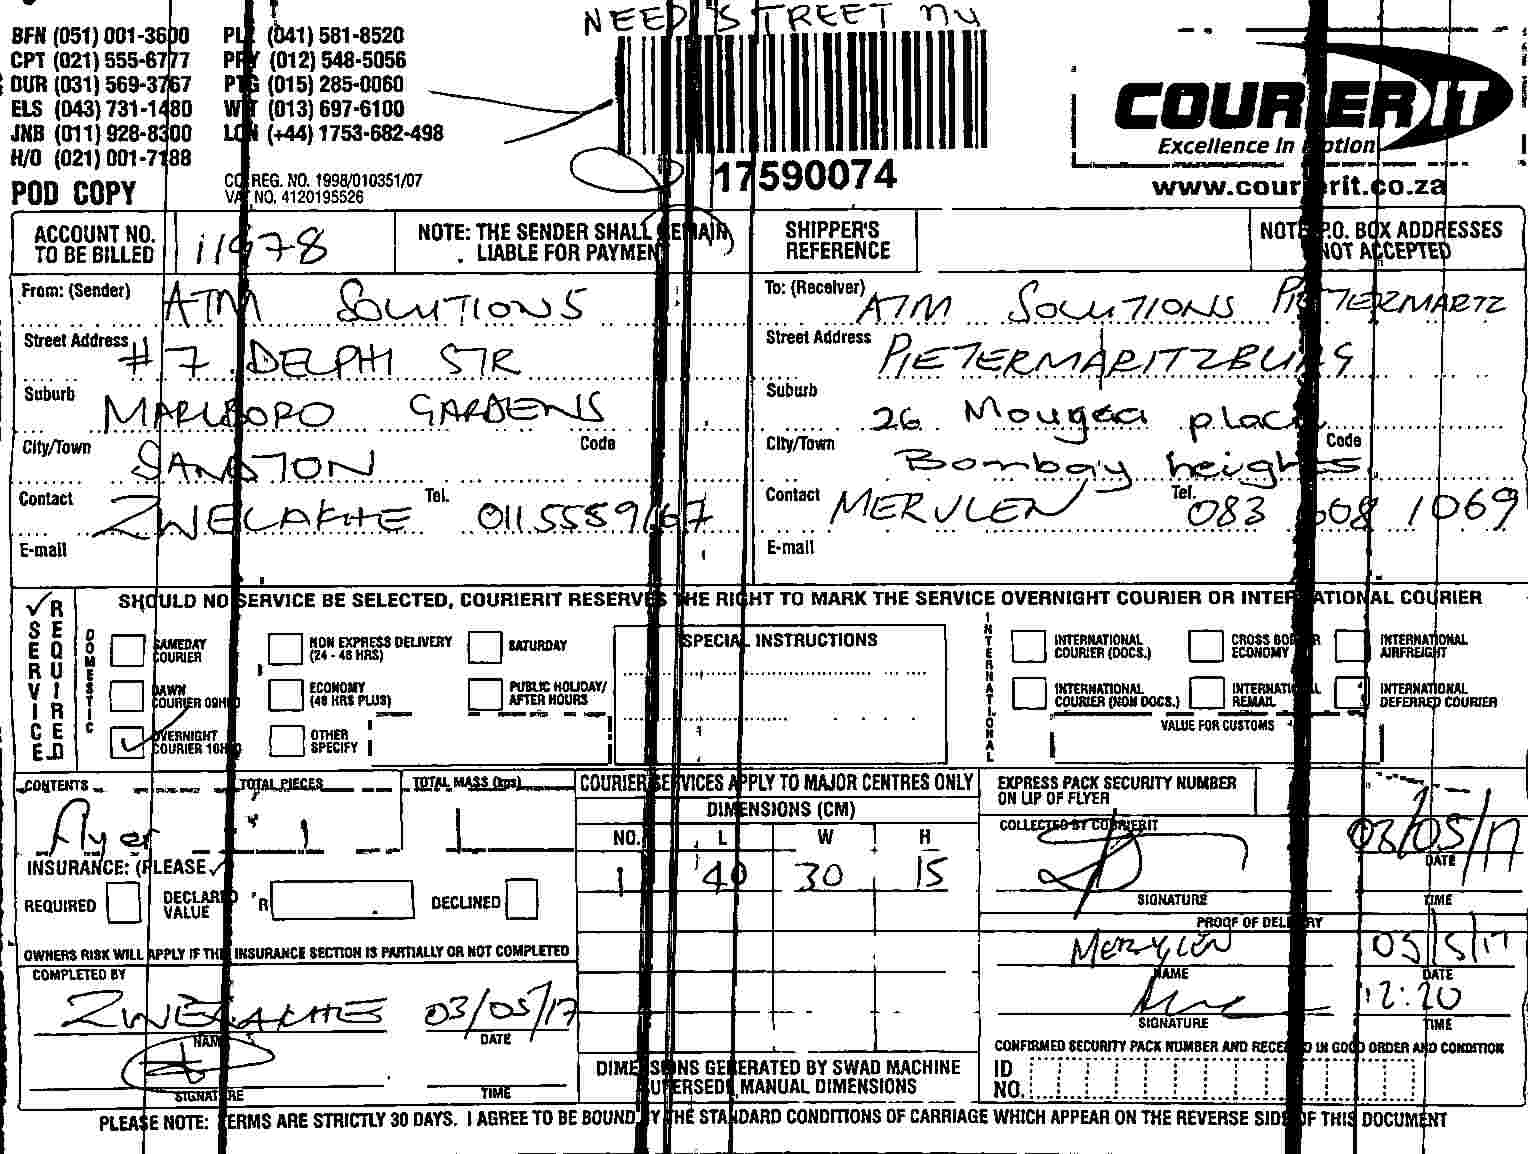 NEED STREET nu
BFN (051) 001-3600 PLZ (041) 581-8520
CPT (021) 555-6777 PRY (012) 548-5056
DUR (031) 569-3767 PTG (015) 285-0060
ELS (043) 731-1480 WIT (013) 697-6100
JNB (011) 928-8300 LON (+44) 1753-682-498
H/O (021) 001-7188
POD COPY
CO. REG. NO. 1998/010351/07
VAT NO. 4120195526
17590074
COURIERIT
Excellence In Motion
www.courierit.co.za
ACCOUNT NO. TO BE BILLED 11978
NOTE: THE SENDER SHALL REMAIN LIABLE FOR PAYMENT
SHIPPER'S REFERENCE
NOTE: P.O. BOX ADDRESSES NOT ACCEPTED
From: (Sender) ATM SOLUTIONS
Street Address #7 DELPHI STR
Suburb MARLBORO GARDENS
City/Town SANDTON Code
Contact ZWELAKHE Tel. 0115559167
E-mail
To: (Receiver) ATM SOLUTIONS PIETERMARTZ
Street Address PIETERMARITZBURG
Suburb 26 Mougea place
City/Town Bombay heights Code
Contact MERVLEN Tel. 083 608 1069
E-mail
SERVICE REQUIRED
SHOULD NO SERVICE BE SELECTED, COURIERIT RESERVES THE RIGHT TO MARK THE SERVICE OVERNIGHT COURIER OR INTERNATIONAL COURIER
DOMESTIC
SAMEDAY COURIER
DAWN COURIER 09H00
OVERNIGHT COURIER 10H30
NON EXPRESS DELIVERY (24 - 48 HRS)
ECONOMY (48 HRS PLUS)
OTHER SPECIFY
SATURDAY
PUBLIC HOLIDAY/ AFTER HOURS
SPECIAL INSTRUCTIONS
INTERNATIONAL
INTERNATIONAL COURIER (DOCS.)
INTERNATIONAL COURIER (NON DOCS.)
CROSS BORDER ECONOMY
INTERNATIONAL REMAIL
INTERNATIONAL AIRFREIGHT
INTERNATIONAL DEFERRED COURIER
VALUE FOR CUSTOMS
CONTENTS Flyer
TOTAL PIECES 1
TOTAL MASS (kgs) 1
INSURANCE: (PLEASE ✓)
REQUIRED DECLARED VALUE R DECLINED
OWNERS RISK WILL APPLY IF THE INSURANCE SECTION IS PARTIALLY OR NOT COMPLETED
COMPLETED BY
ZWELAKHE 03/05/17
NAME DATE
SIGNATURE TIME
COURIER SERVICES APPLY TO MAJOR CENTRES ONLY
DIMENSIONS (CM)
NO. L W H
1 40 30 15
DIMENSIONS GENERATED BY SWAD MACHINE SUPERSEDE MANUAL DIMENSIONS
EXPRESS PACK SECURITY NUMBER ON LIP OF FLYER
COLLECTED BY COURIERIT
03/05/17
DATE
SIGNATURE TIME
PROOF OF DELIVERY
MERVLEN 03/5/17
NAME DATE
12:20
SIGNATURE TIME
CONFIRMED SECURITY PACK NUMBER AND RECEIVED IN GOOD ORDER AND CONDITION
ID NO.
PLEASE NOTE: TERMS ARE STRICTLY 30 DAYS. I AGREE TO BE BOUND BY THE STANDARD CONDITIONS OF CARRIAGE WHICH APPEAR ON THE REVERSE SIDE OF THIS DOCUMENT